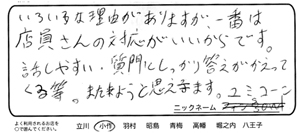 いろいろな理由がありますが、一番は
店員さんの対応がいいからです。
話しやすい、質問にしっかり答えがかえって
くる等。またきようと思えます。ユミコーン
ニックネーム
よく利用されるお店を
○で囲んでください
立川 小作 羽村 昭島 青梅 高幡 堀之内 八王子